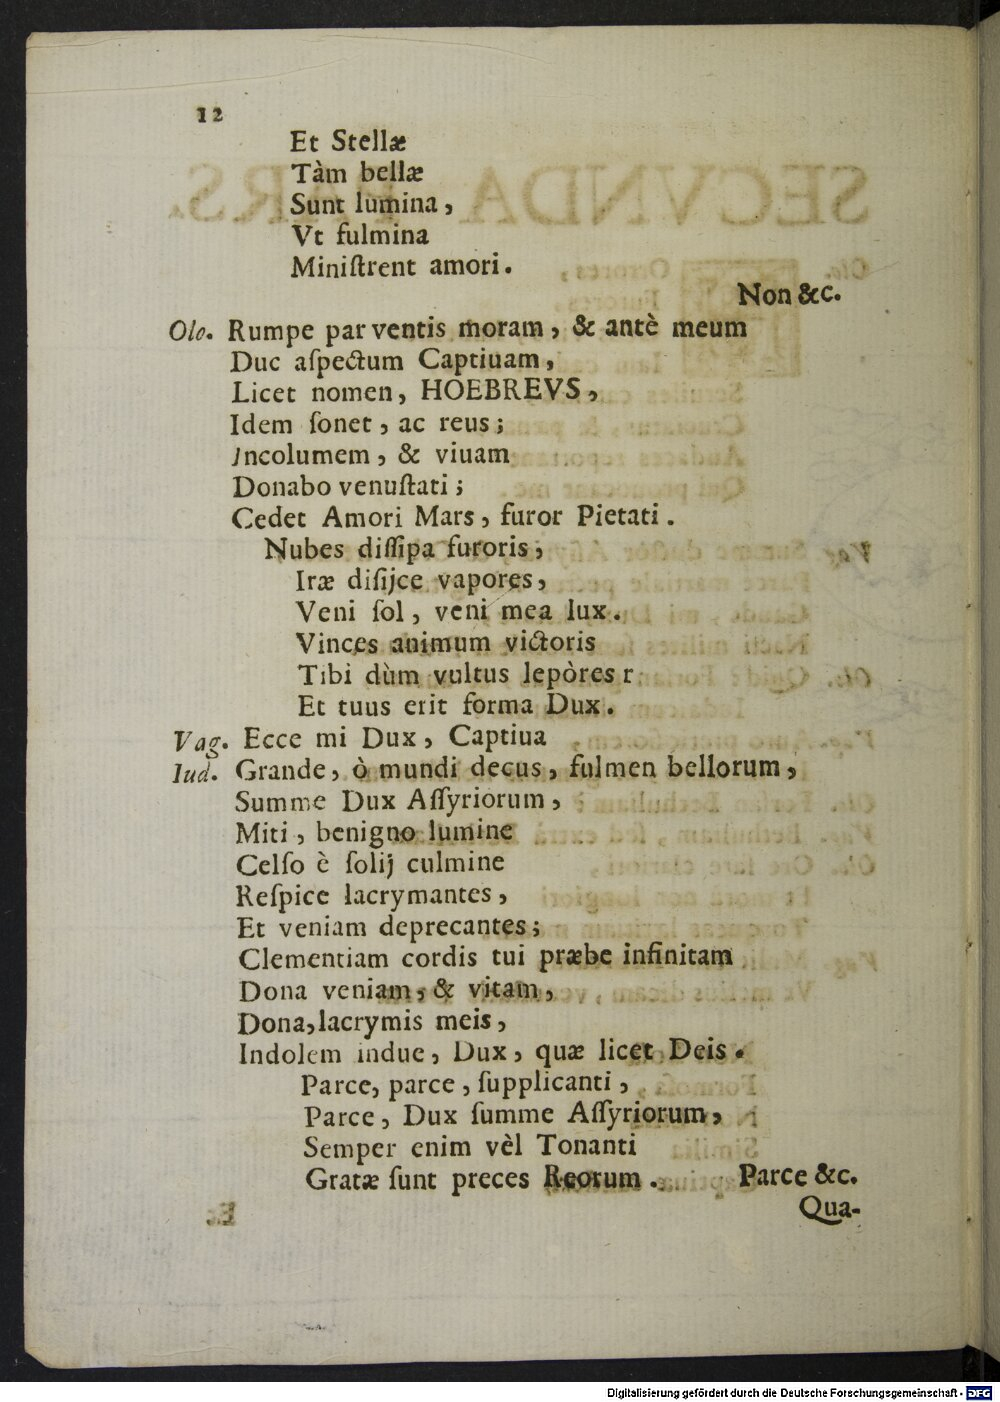 12
Et Stellæ
Tàm bellæ
Sunt lumina,
Vt fulmina
Miniſtrent amori.
Non &c.
Olo. Rumpe par ventis moram, & antè meum
Duc aſpectum Captiuam,
Licet nomen, HOEBREVS,
Idem ſonet, ac reus;
Jncolumem, & viuam
Donabo venuſtati;
Cedet Amori Mars, furor Pietati.
Nubes diſſipa furoris,
Iræ diſijce vapores,
Veni ſol, veni mea lux.
Vinces animum victoris
Tibi dùm vultus lepòres r
Et tuus erit forma Dux.
Vag. Ecce mi Dux, Captiua
Iud. Grande, ò mundi decus, fulmen bellorum,
Summe Dux Aſſyriorum,
Miti, benigno lumine
Celſo è ſolij culmine
Reſpice lacrymantes,
Et veniam deprecantes;
Clementiam cordis tui præbe infinitam
Dona veniam, & vitam,
Dona, lacrymis meis,
Indolem indue, Dux, quæ licet Deis.
Parce, parce, ſupplicanti,
Parce, Dux ſumme Aſſyriorum,
Semper enim vèl Tonanti
Gratæ ſunt preces Reorum. Parce &c.
Qua-
Digitalisierung gefördert durch die Deutsche Forschungsgemeinschaft - DFG